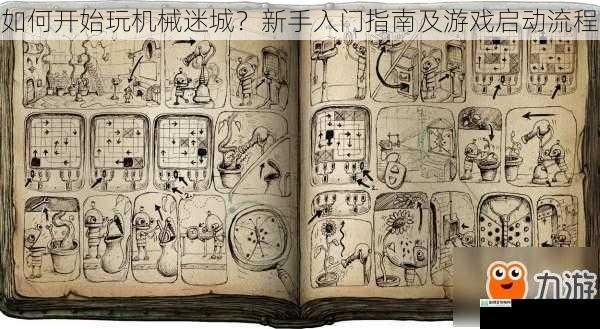 如何开始玩机械迷城？新手入门指南及游戏启动流程
1.
2.
九游